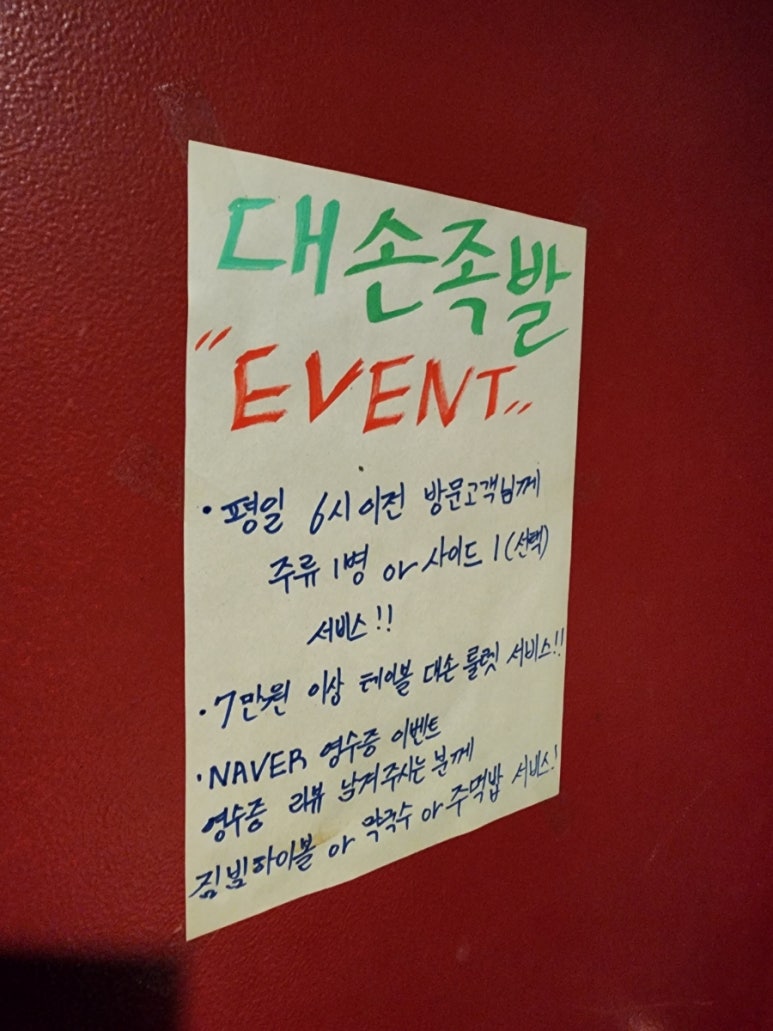 대손족발
"EVENT"
· 평일 6시 이전 방문고객님께
주류 1병 or 사이드 1 (선택)
서비스!!
· 7만원 이상 테이블 대손 룰렛 서비스!!
· NAVER 영수증 이벤트
영수증 리뷰 남겨주시는 분께
짐빔하이볼 or 막국수 or 주먹밥 서비스!